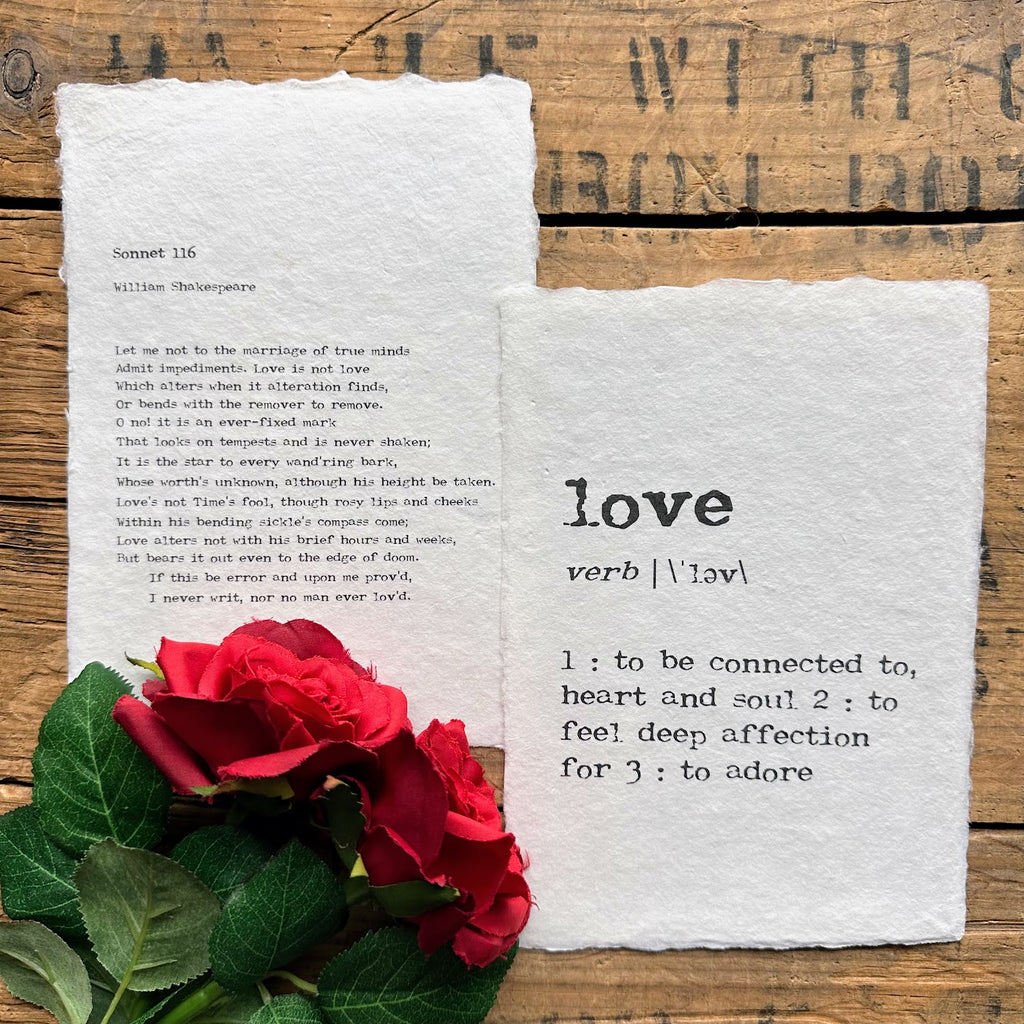 WITH
Sonnet 116
William Shakespeare
Let me not to the marriage of true minds
Admit impediments. Love is not love
Which alters when it alteration finds,
Or bends with the remover to remove.
O no! it is an ever-fixed mark
That looks on tempests and is never shaken;
It is the star to every wand'ring bark,
Whose worth's unknown, although his height be taken.
Love's not Time's fool, though rosy lips and cheeks
Within his bending sickle's compass come;
Love alters not with his brief hours and weeks,
But bears it out even to the edge of doom.
If this be error and upon me prov'd,
I never writ, nor no man ever lov'd.
love
verb | \ˈləv\
1 : to be connected to,
heart and soul 2 : to
feel deep affection
for 3 : to adore